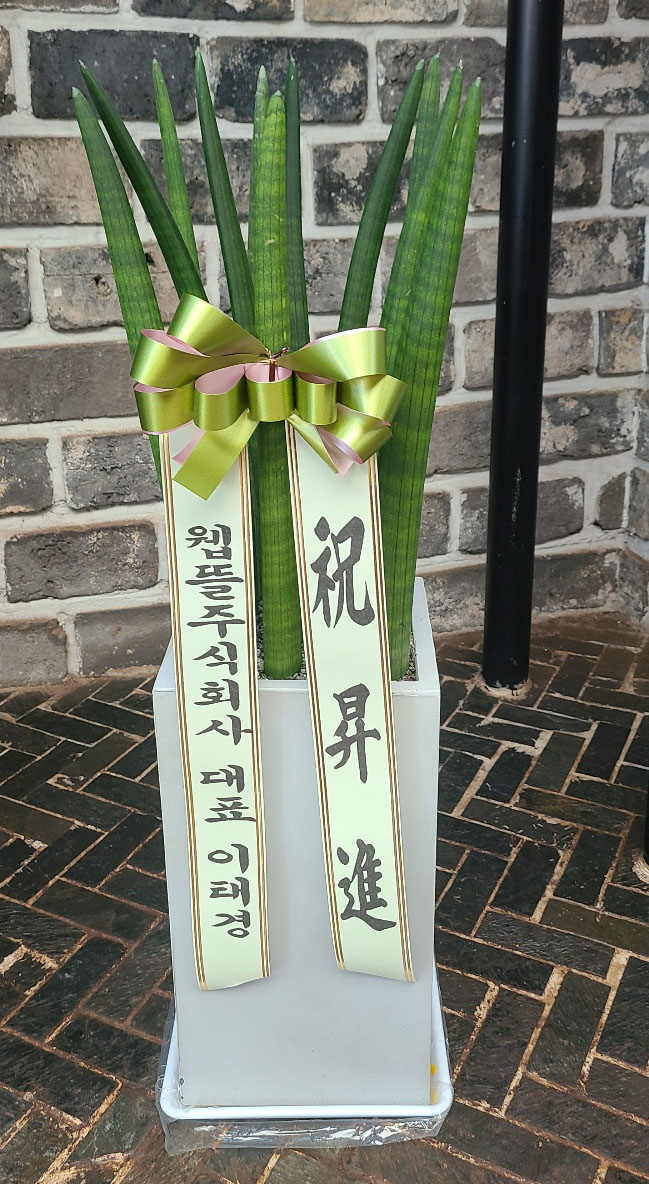 웹뜰주식회사 대표 이태경
祝昇進